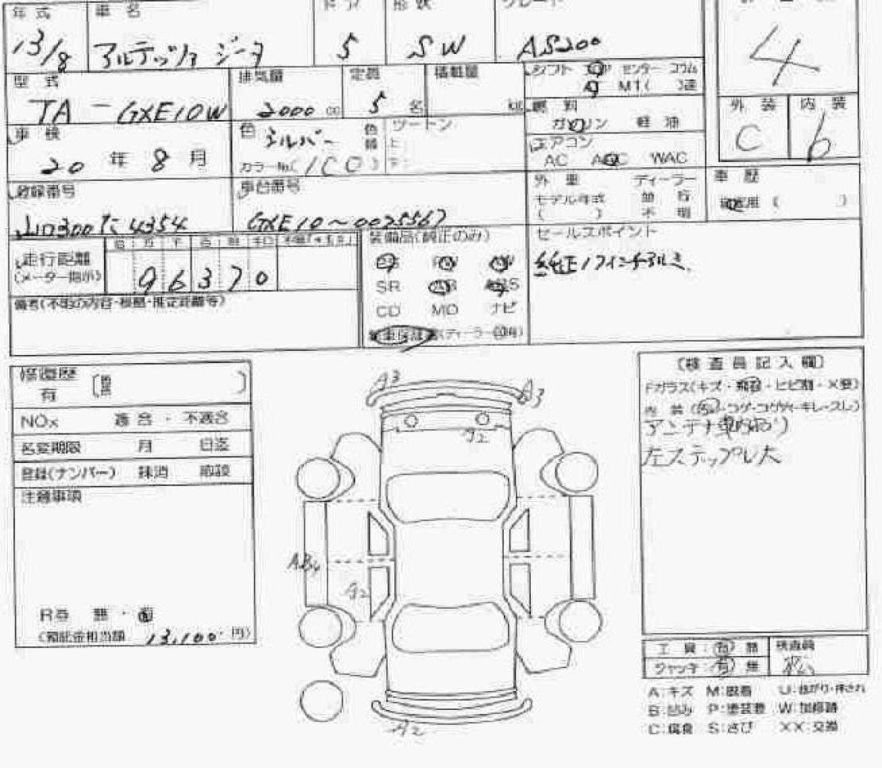 年式 車名 ドア 形状 グレード
13/8 アルテッツァ ジータ 5 SW AS200 4
型式 排気量 定員 積載量 シフト センター コラム
MT( )速
TA-GXE10W 2000 cc 5 名 燃料 外装 内装
ガソリン 軽油 C b
車検 色 シルバー ツートン エアコン
20 年 8 月 カラーNo.(1C0) AC AAC WAC
登録番号 車台番号 外車 ディーラー 車歴
モデル年式 並行
( ) 不明
山口300 4354 GXE10~0025567
走行距離 装備品(純正のみ) セールスポイント
(メーター指示) 96370 純正17インチアルミ
SR AB ABS
CD MD ナビ
備考(不明の内容・積算・推定距離等)
修復歴
有
NOx 適合・不適合
名変期限 月 日迄
登録(ナンバー) 抹消
注意事項
R券 無・有
(預託金相当額 13,100 円)
A3 A3
A2
AB4
A2
A2
〔検査員記入欄〕
Fガラス(キズ・飛石・ヒビ割・X要)
内装
アンテナ
左ステップ
工具:有 無 検査員
ジャッキ:有 無
A:キズ M:脱着 U:曲がり・押され
B:凹み P:塗装要 W:加修跡
C:腐食 S:さび XX:交換